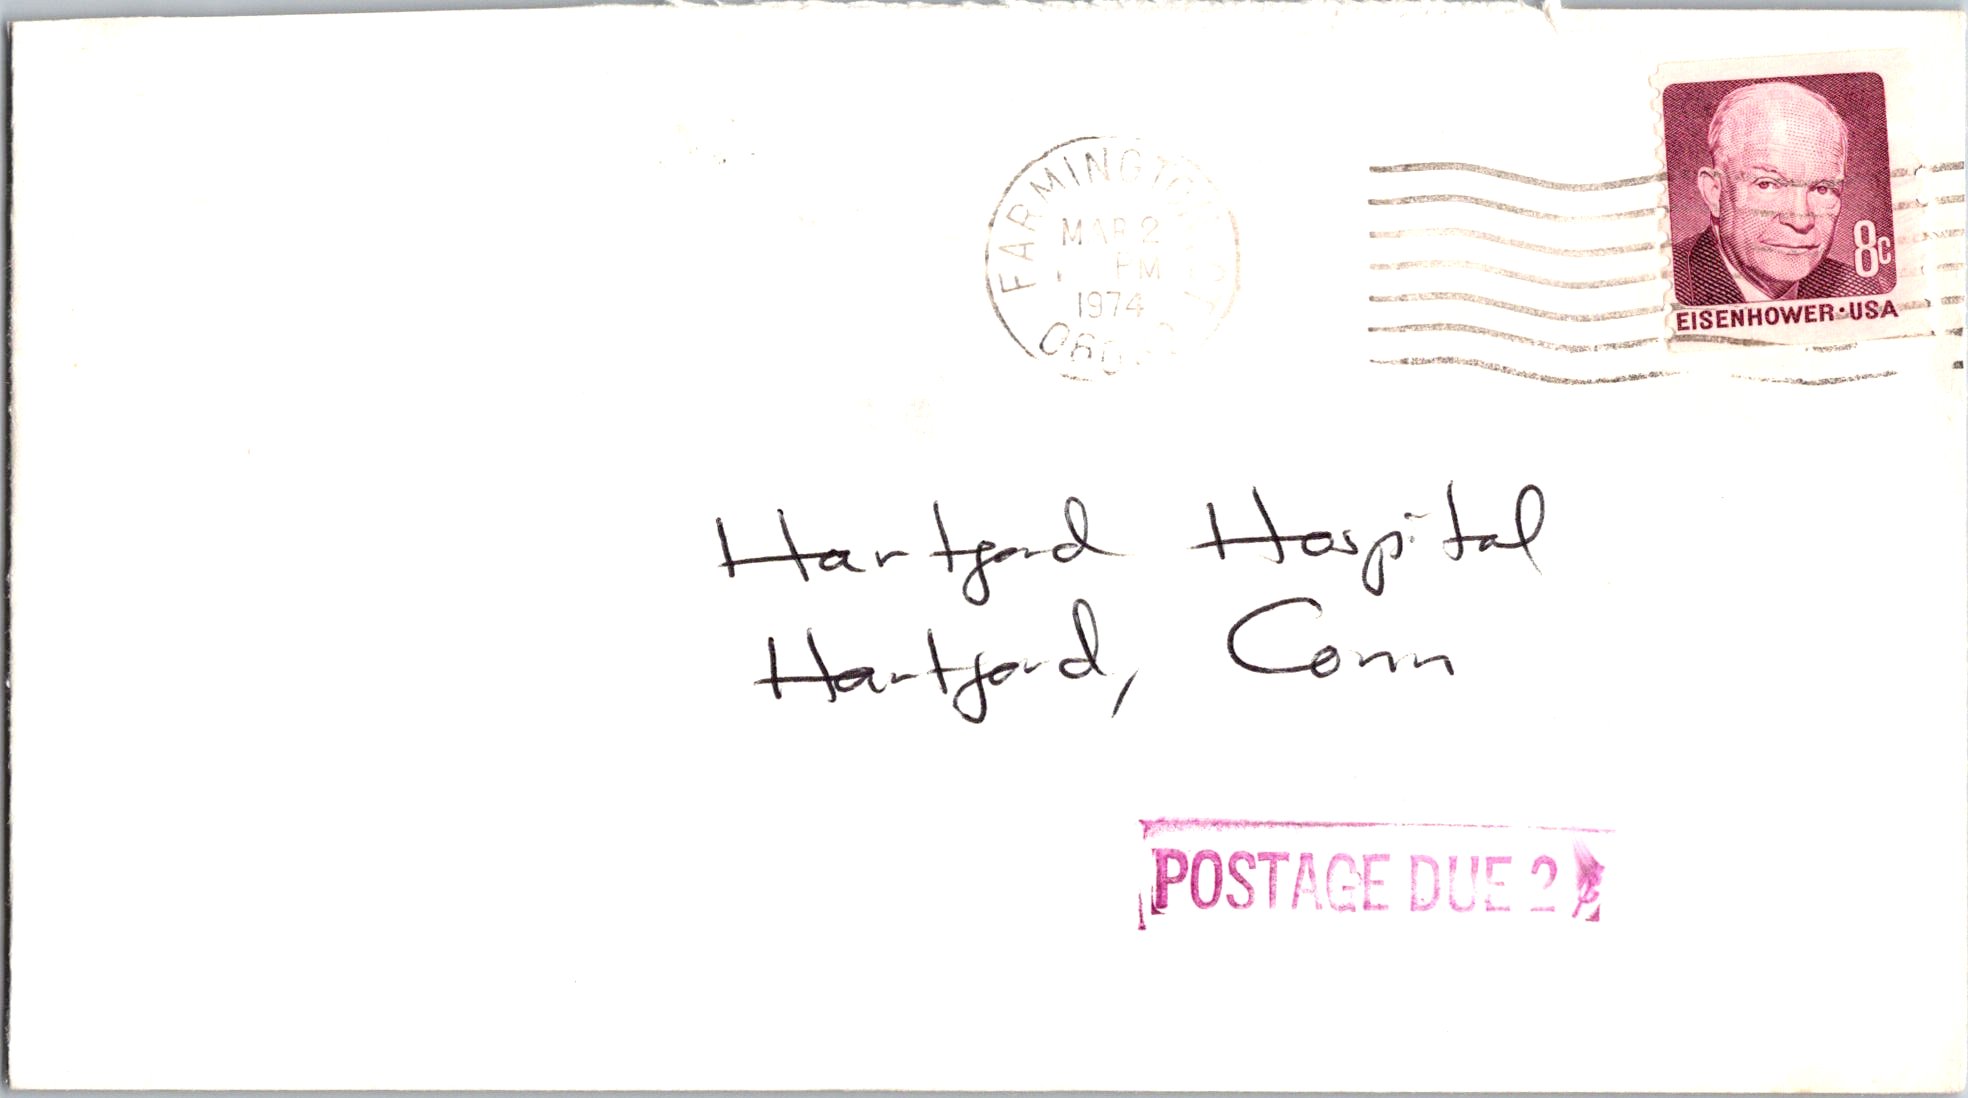 FARMINGTON
MAR 2
PM
1974
8c
EISENHOWER·USA
Hartford Hospital
Hartford, Conn
POSTAGE DUE 2